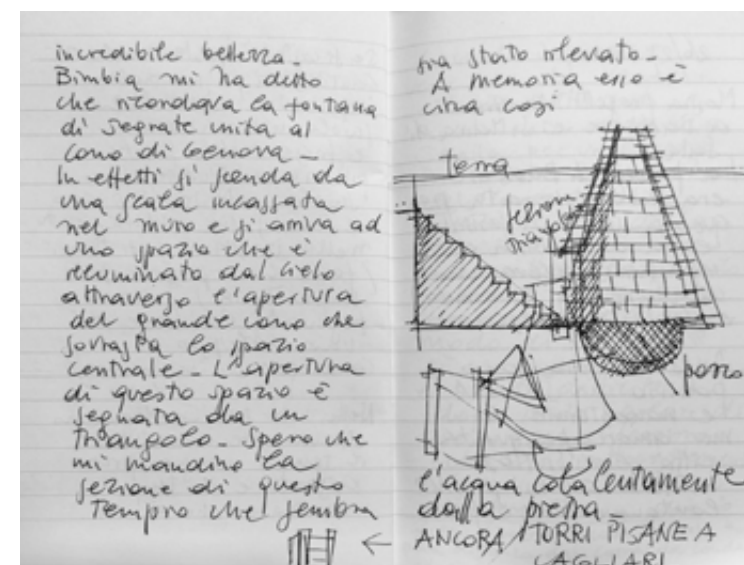 incredibile bellezza_
Bimbia mi ha detto
che ricordava la fontana
di Segrate unita al
cono di Genova_
In effetti si scende da
una scala incassata
nel muro e si arriva ad
uno spazio che è
illuminato dal cielo
attraverso l'apertura
del grande cono che
sovrasta lo spazio
centrale_ L'apertura
di questo spazio è
segnata da un
triangolo_ Spero che
mi mandino la
sezione di questo
Tempio che sembra
sia stato rilevato_
A memoria esso è
circa così
terra
sezione
pozzo
l'acqua cola lentamente
dalla pietra_
ANCORA / TORRI PISANE A
CAGLIARI